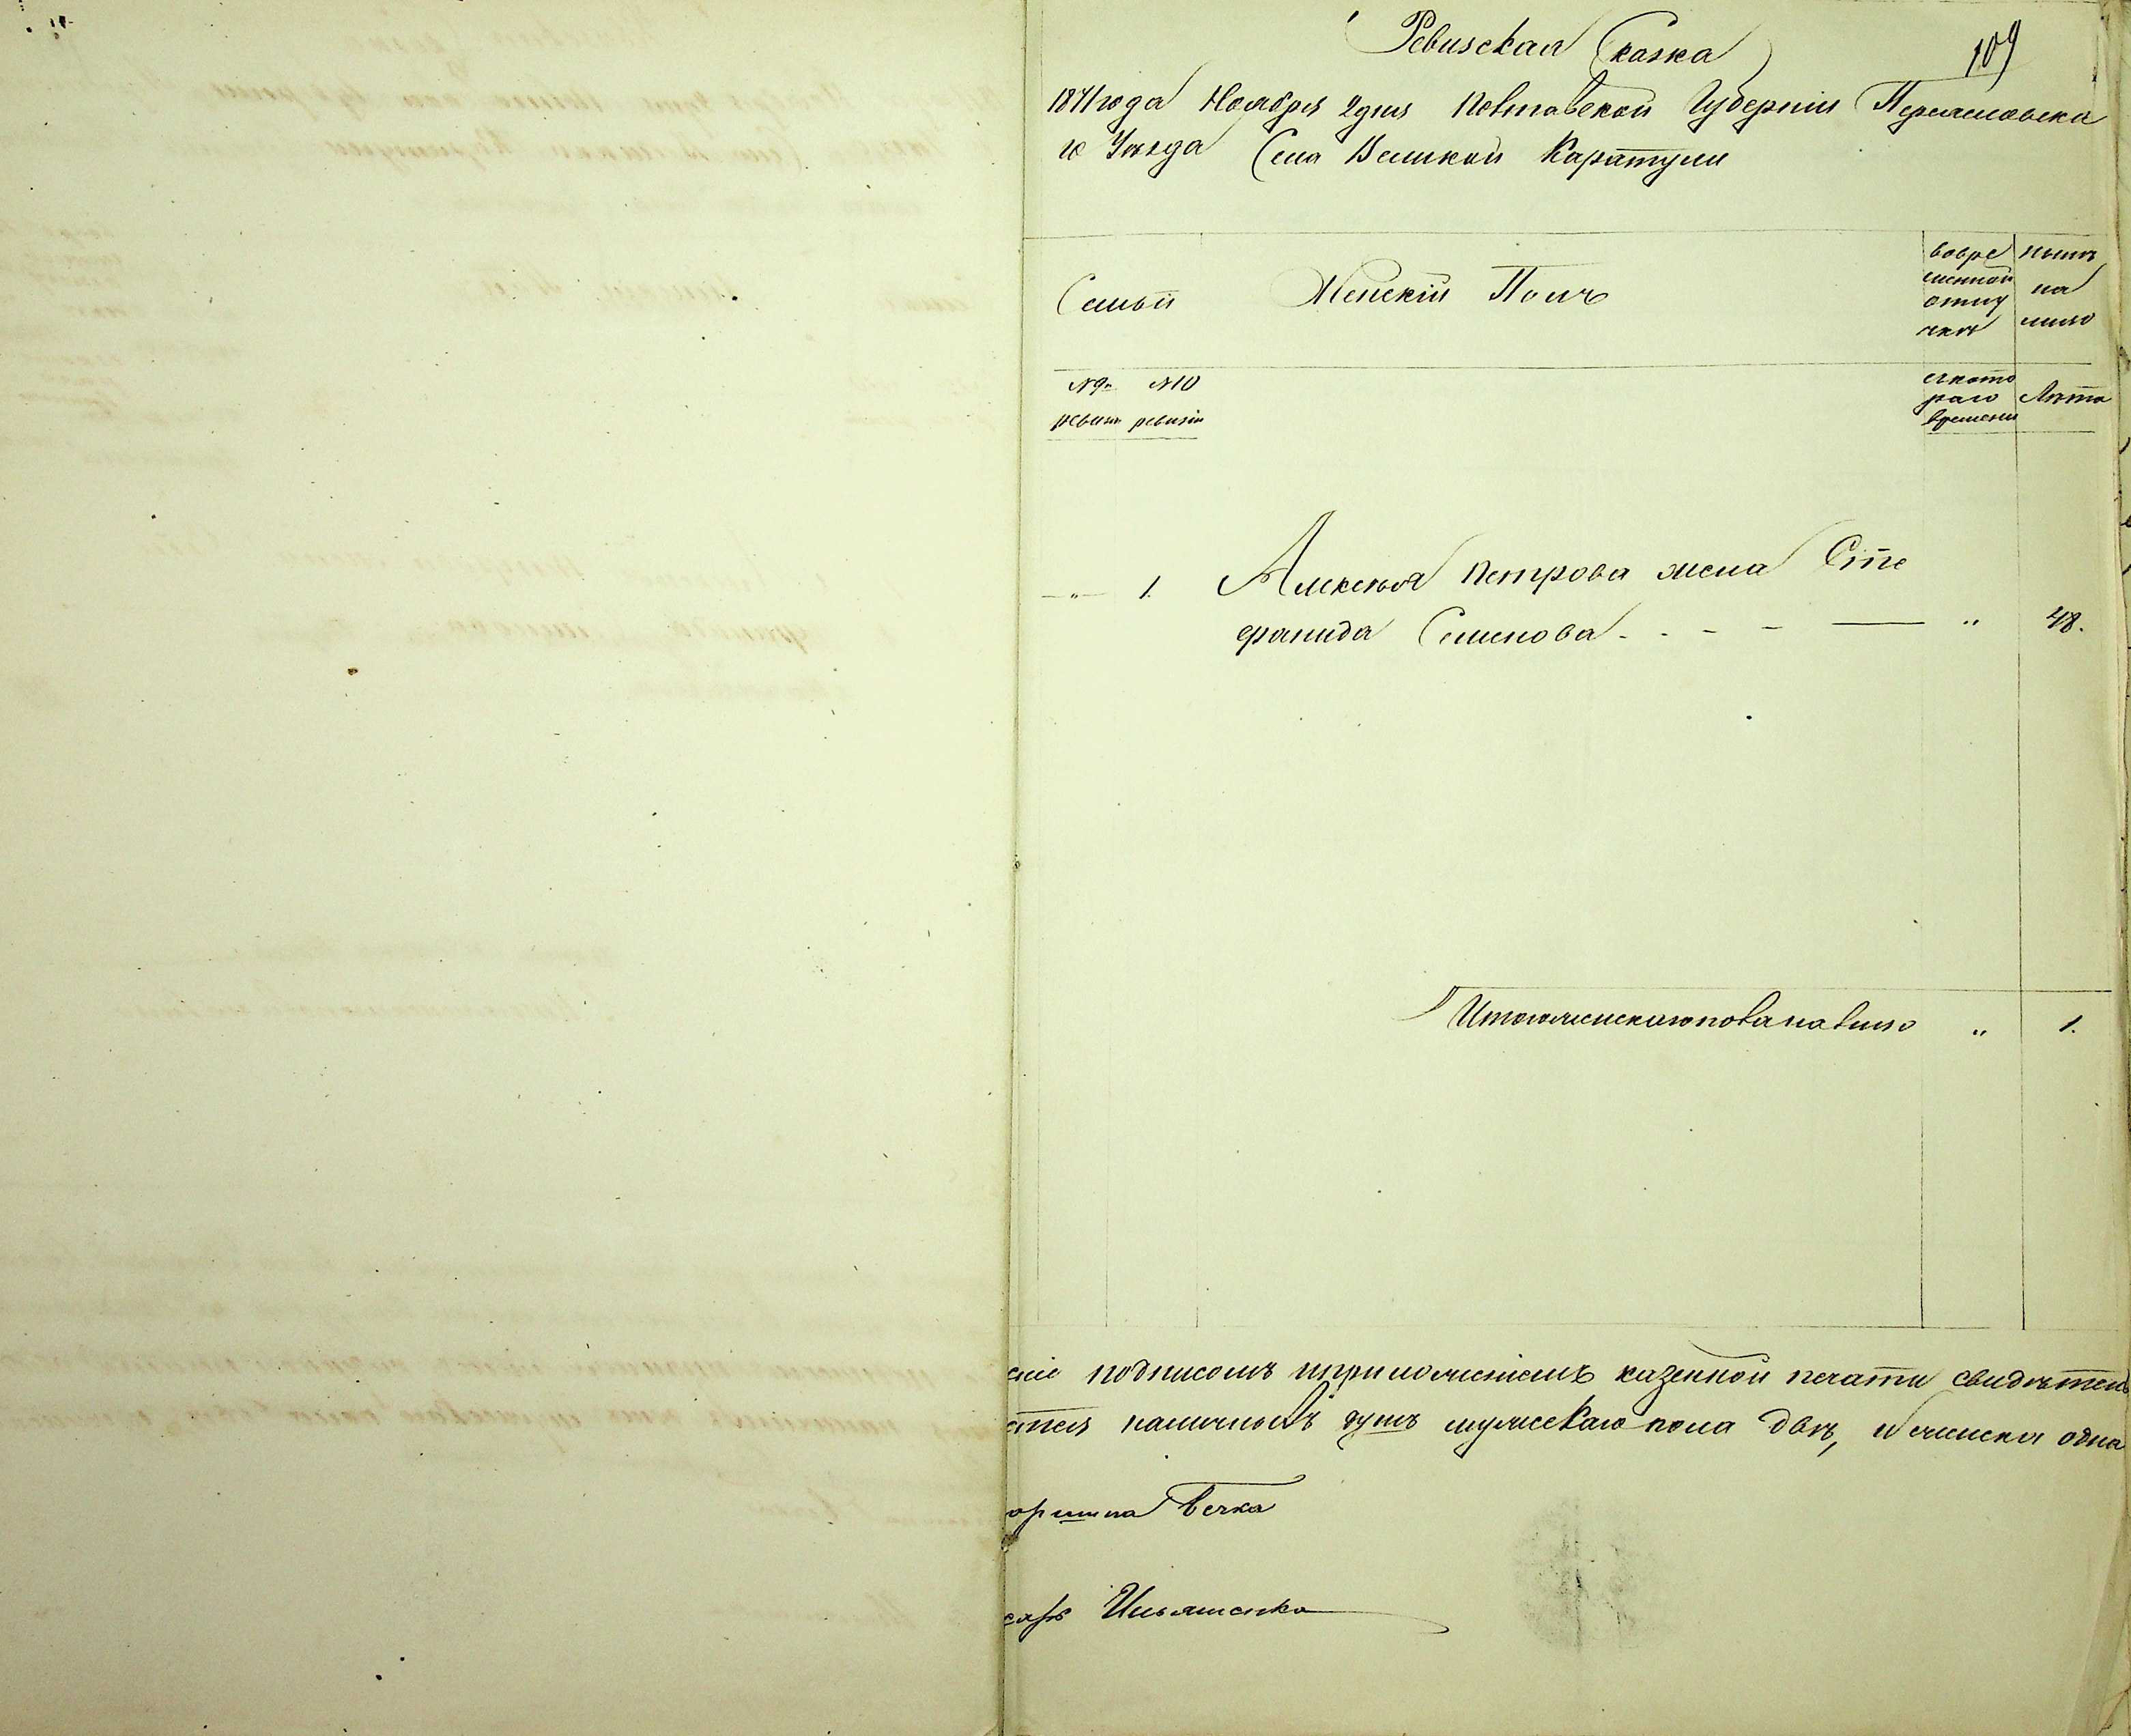 Ревизская Сказка
109
1871 года Ноября 2 дня Полтавской Губерніи Переяславска
го Уѣзда Села Великой Каратули
Семьи
Женскій Полъ
вовре
менной
отлу
чкѣ
нынѣ
на
лицо
№ 9й
ревизіи
№ 10
ревизіи
съ кото
раго
времени
Лѣта
„ 1. Алексѣя Петрова жена Сте
фанида Семенова - - - - — „ 48.
Итого женскаго пола на лицо „ 1.
подписомъ и приложеніемъ казенной печати свидѣтель
наличныхъ душъ мужескаго пола двѣ, и женска одна
оршина Бечка
сарь Ильяшенко